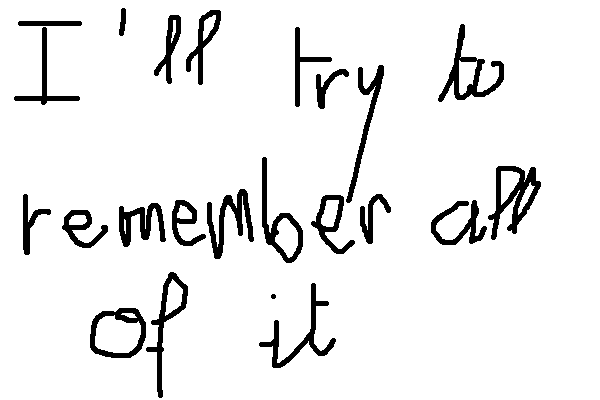 I'll try to
remember all
of it